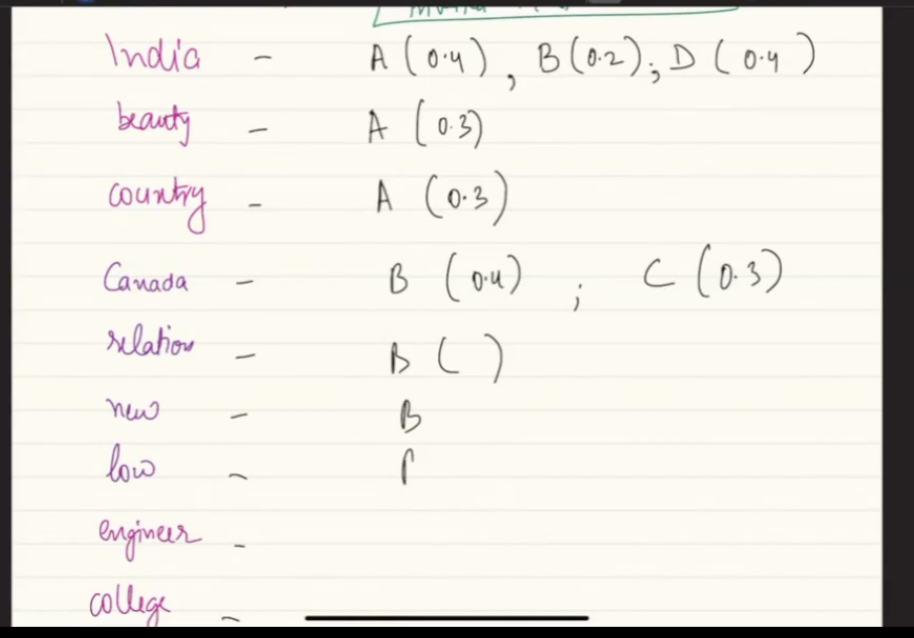 India - A (0.4), B (0.2); D (0.4)
beauty - A (0.3)
country - A (0.3)
Canada - B (0.4) ; C (0.3)
relation - B ( )
new - B
low -
engineer -
college -